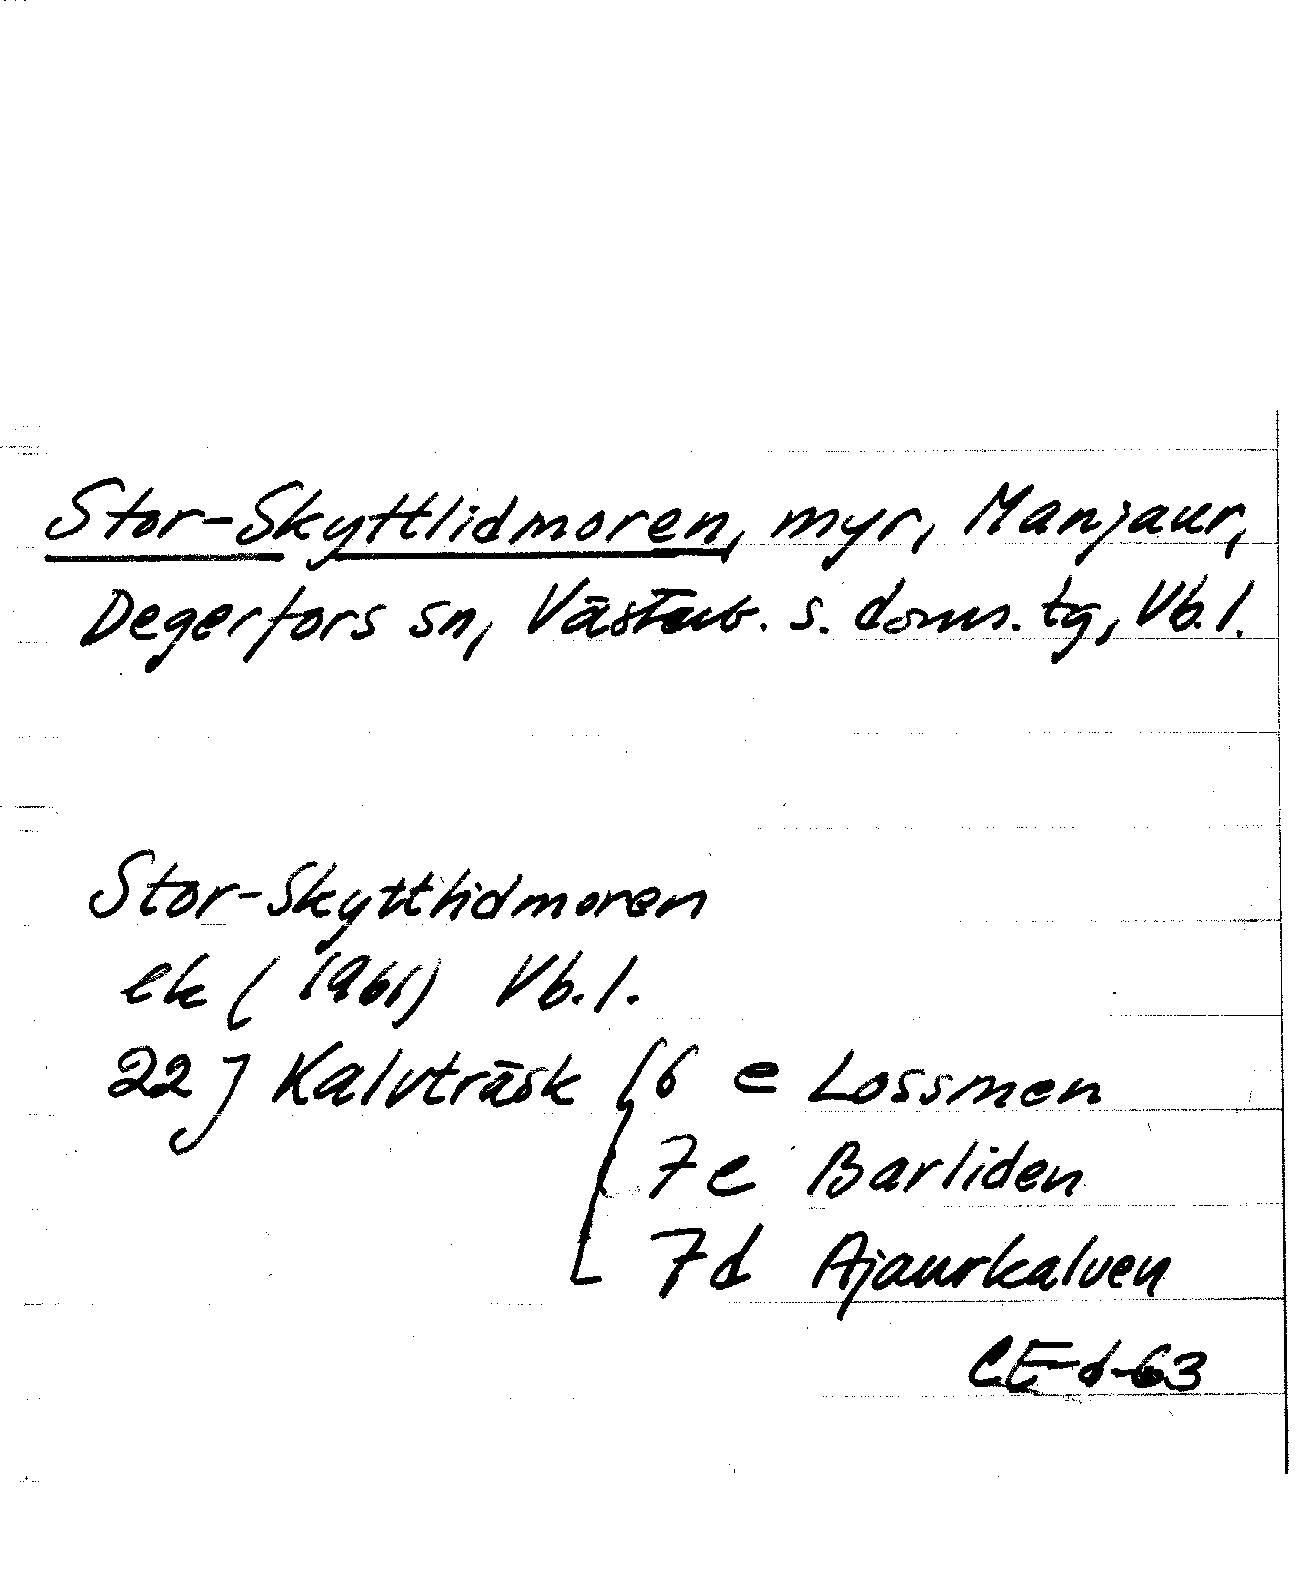 Stor-Skyttlidmoren, myr, Manjaur,
Degerfors sn, Västerb. s. doms. tg, Vb. l.
Stor-Skyttlidmoren
ek (1961) Vb. l.
22 J Kalvträsk 6 e Lossmen
7 e Barliden
7 d Ajaurkalven
CE-d-63